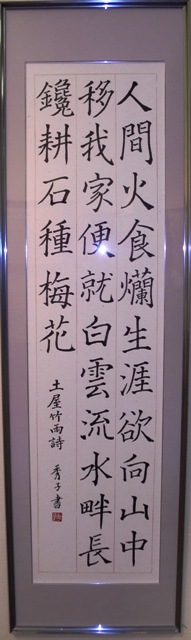 人間火食爛生涯欲向山中
移我家便就白雲流水畔長
鑱耕石種梅花
土屋竹雨詩 秀子書